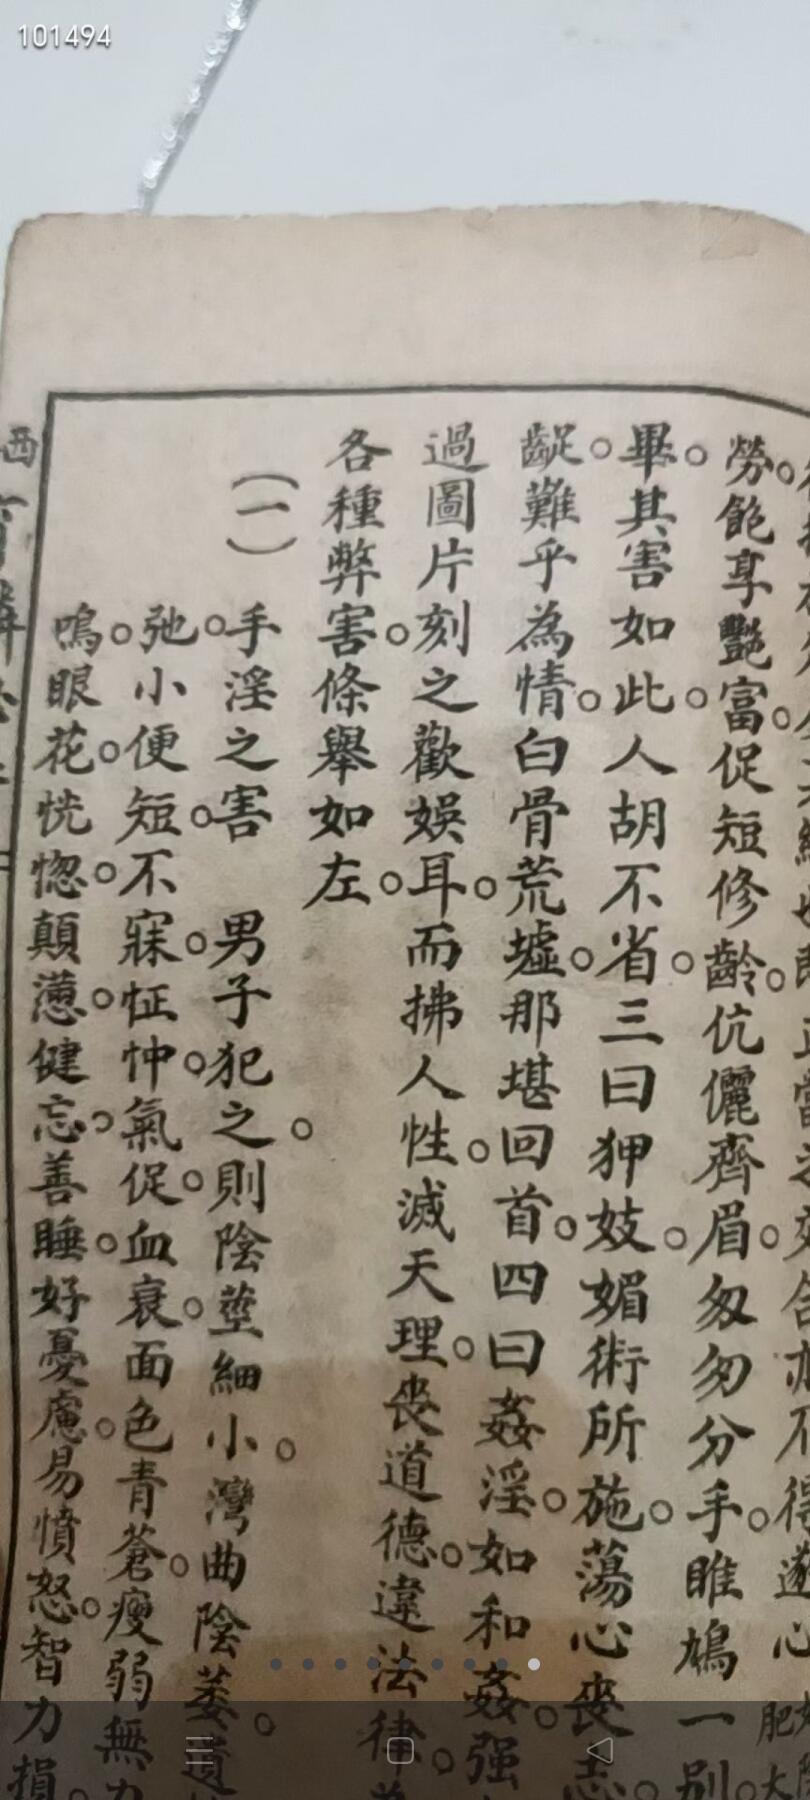 101494
勞。飽享艷富。促短修齡。伉儷齊眉。匆匆分手。雎鳩一別。
畢。其害如此。人胡不省。三曰狎妓。媚術所施。蕩心喪志。
齪。難乎為情。白骨荒墟。那堪回首。四曰姦淫。如和姦。强
過圖片刻之歡娛耳。而拂人性。滅天理。喪道德。違法律。
各種弊害。條舉如左。
(一)
手淫之害 男子犯之。則陰莖細小。灣曲陰萎。遺
弛。小便短。不寐。怔忡。氣促。血衰。面色青蒼。瘦弱無力
鳴。眼花。恍惚。顛。健忘。善睡。好憂慮。易憤怒。智力損。
肥大